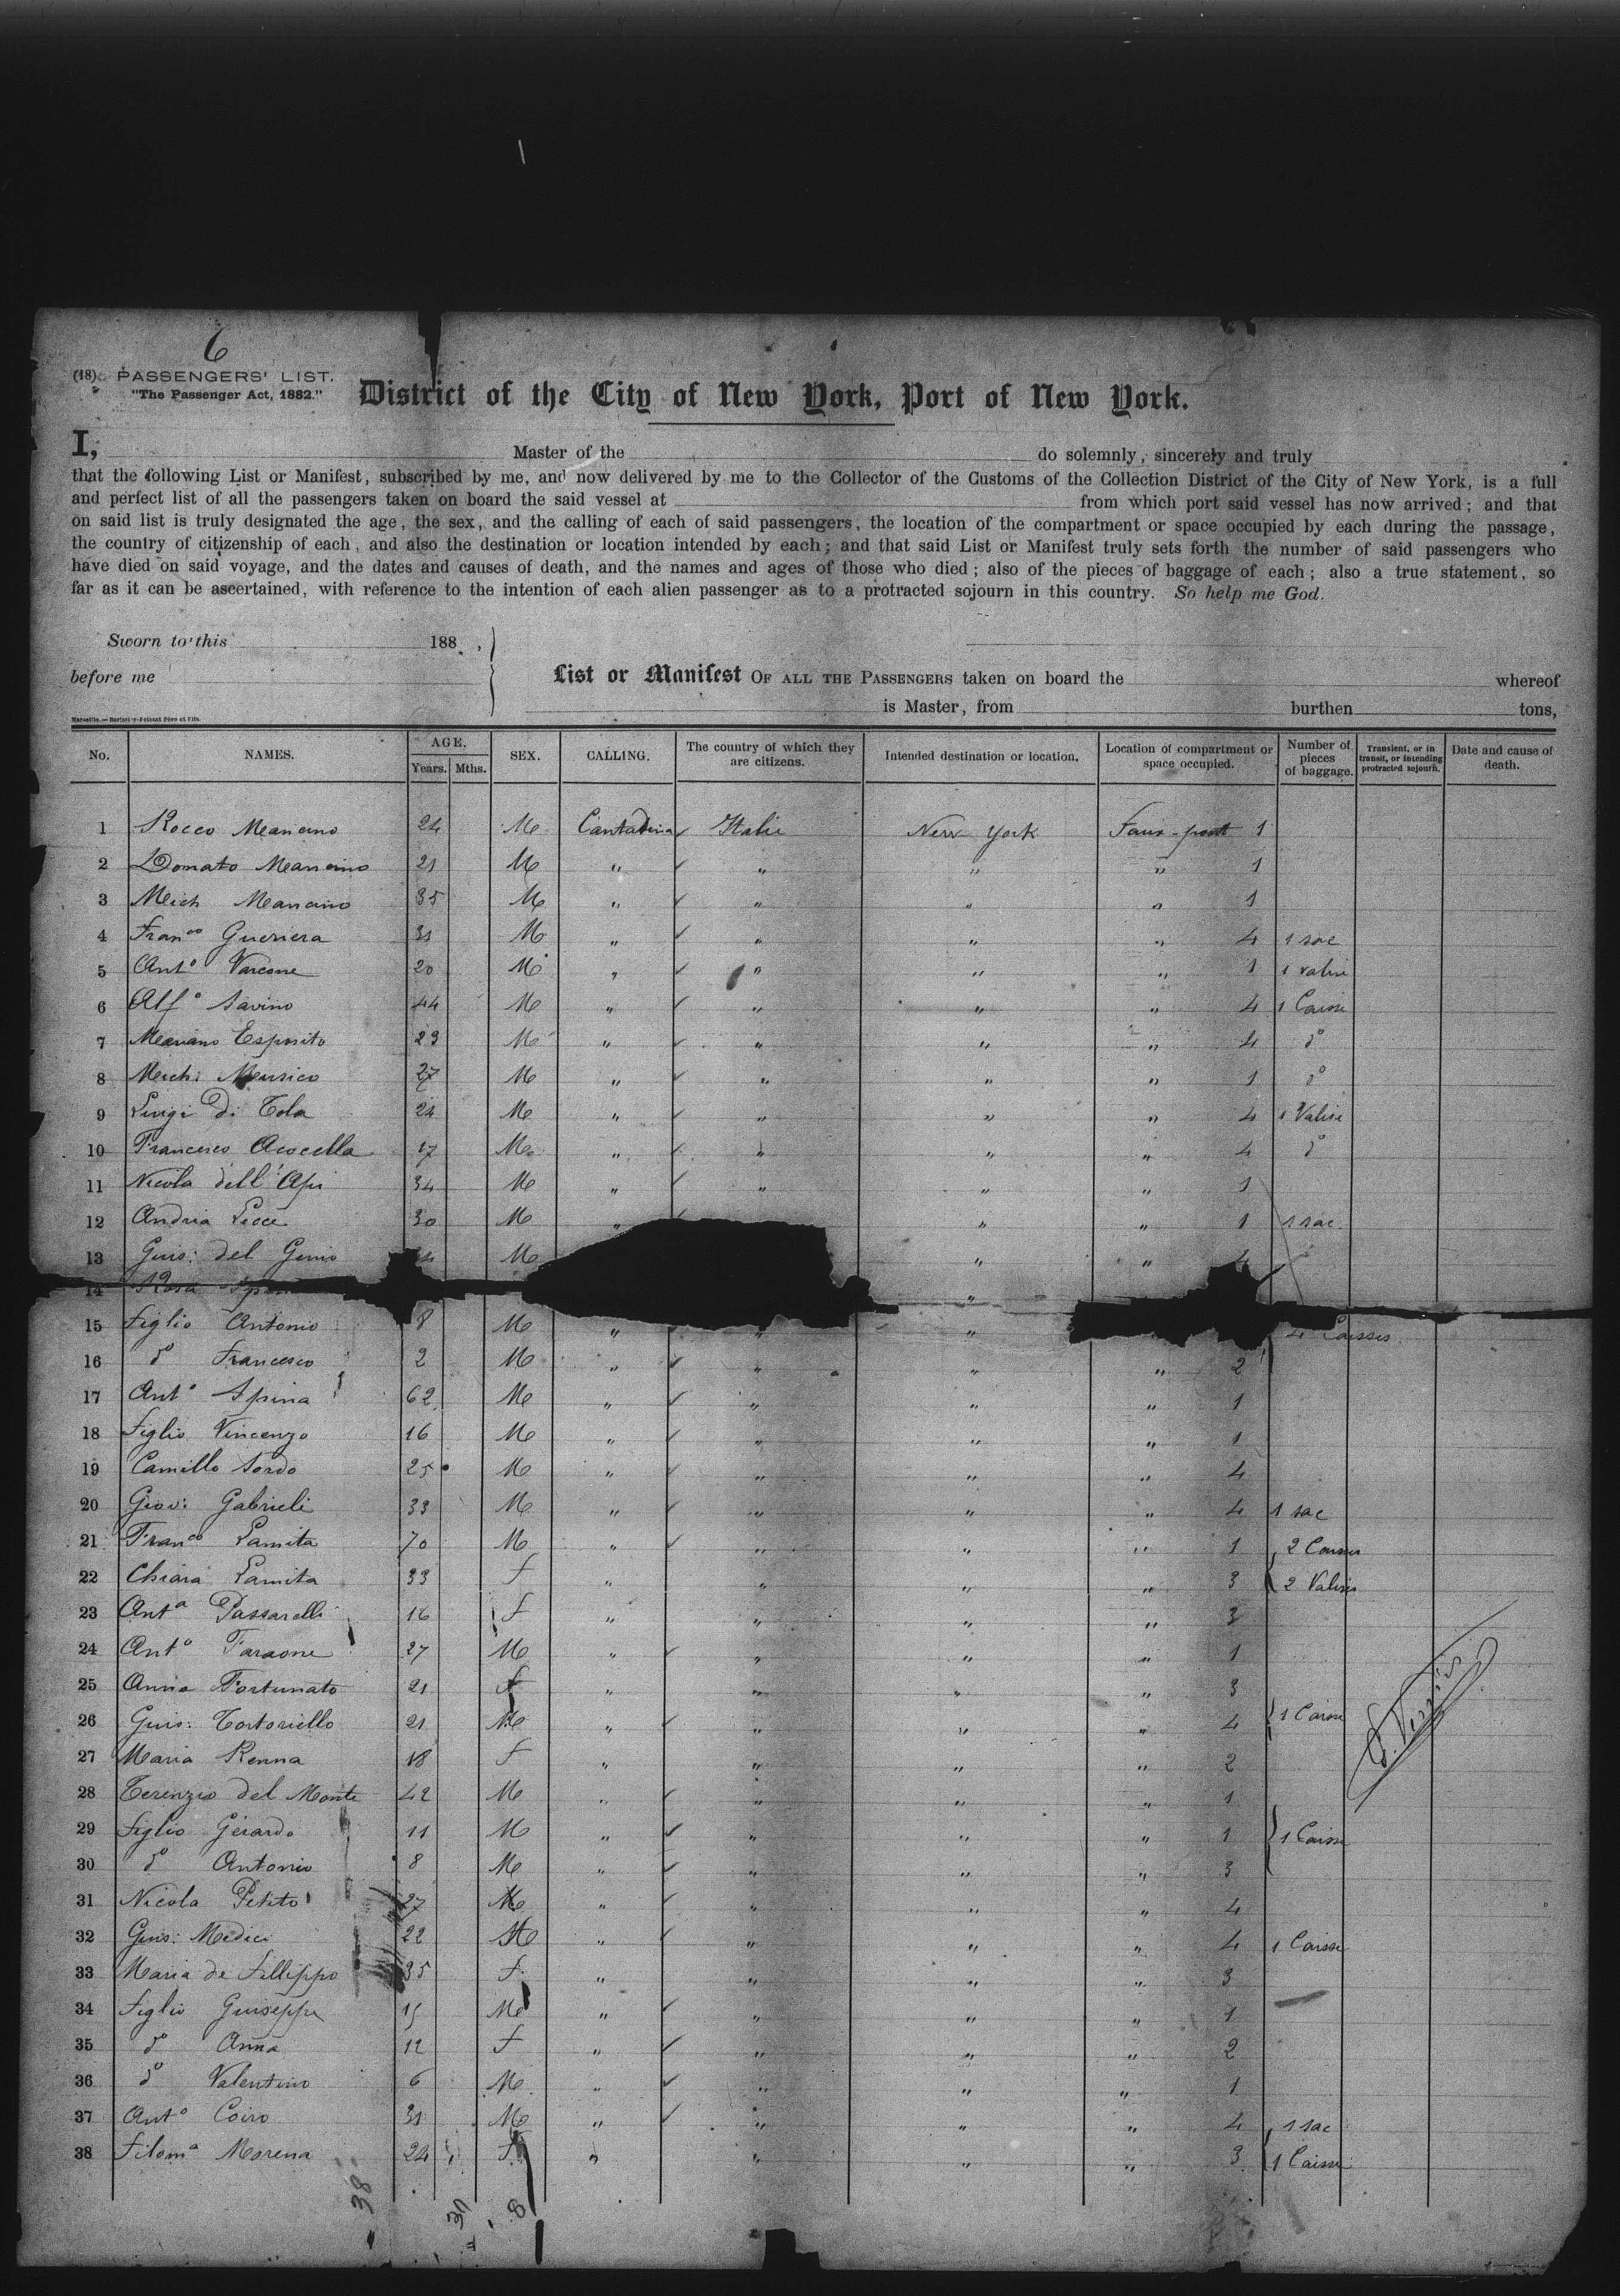 6
(18) PASSENGERS' LIST.
"The Passenger Act, 1882."
District of the City of New York, Port of New York.
I, Master of the do solemnly, sincerely and truly
that the following List or Manifest, subscribed by me, and now delivered by me to the Collector of the Customs of the Collection District of the City of New York, is a full
and perfect list of all the passengers taken on board the said vessel at from which port said vessel has now arrived; and that
on said list is truly designated the age, the sex, and the calling of each of said passengers, the location of the compartment or space occupied by each during the passage,
the country of citizenship of each, and also the destination or location intended by each; and that said List or Manifest truly sets forth the number of said passengers who
have died on said voyage, and the dates and causes of death, and the names and ages of those who died; also of the pieces of baggage of each; also a true statement, so
far as it can be ascertained, with reference to the intention of each alien passenger as to a protracted sojourn in this country. So help me God.
Sworn to this 188 ,
before me
List or Manifest OF ALL THE PASSENGERS taken on board the whereof
is Master, from burthen tons,
No. NAMES. AGE. Years. Mths. SEX. CALLING. The country of which they are citizens. Intended destination or location. Location of compartment or space occupied. Number of pieces of baggage. Transient, or in transit, or intending protracted sojourn. Date and cause of death.
1 Rocco Mancino 24 M Cantadina Italie New York Faux-pont 1
2 Donato Mancino 21 M " " " " 1
3 Mich Mancino 35 M " " " " 1
4 Franco Gueriera 31 M " " " " 4 1 sac
5 Anto Varcone 20 M " " " " 1 1 valise
6 Alfo Savino 44 M " " " " 4 1 Caisse
7 Mariano Esposito 29 M " " " " 4 do
8 Mich: Mursico 27 M " " " " 1 do
9 Luigi Di Tola 24 M " " " " 4 1 Valise
10 Francesco Acocella 17 M " " " " 4 do
11 Nicola dell'Api 34 M " " " " 1
12 Andria Lecce 30 M " " " 1 1 sac
13 Guis: del Genio M " " 4
14 Rosa "
15 Figlio Antonio 8 M " " " 4 Caisses
16 do Francesco 2 M " " " " 2
17 Anto Spina 62 M " " " " 1
18 Figlio Vincenzo 16 M " " " " 1
19 Camillo Sordo 25 M " " " " 4
20 Giov: Gabrieli 33 M " " " " 4 1 sac
21 Franco Lamita 70 M " " " " 1 2 Caisses
22 Chiara Lamita 33 F " " " " 3 2 Valises
23 Anta Passarelli 16 F " " " " 3
24 Anto Faraone 27 M " " " " 1
25 Anna Fortunato 21 F " " " " 3
26 Guis: Tortoriello 21 M " " " " 4 1 Caisse
27 Maria Renna 18 F " " " " 2
28 Terenzio del Monte 42 M " " " " 1
29 Figlio Gerardo 11 M " " " " 1 1 Caisse
30 do Antonio 8 M " " " " 3
31 Nicola Petito 27 M " " " " 4
32 Guis: Medici 22 M " " " " 4 1 Caisse
33 Maria de Fillippo 35 F " " " " 3
34 Figlio Guiseppe 15 M " " " " 1
35 do Anna 12 F " " " " 2
36 do Valentino 6 M " " " " 1
37 Anto Coiro 31 M " " " " 4 1 sac
38 Filoma Morena 24 F " " " " 3 1 Caisse
38
30
8